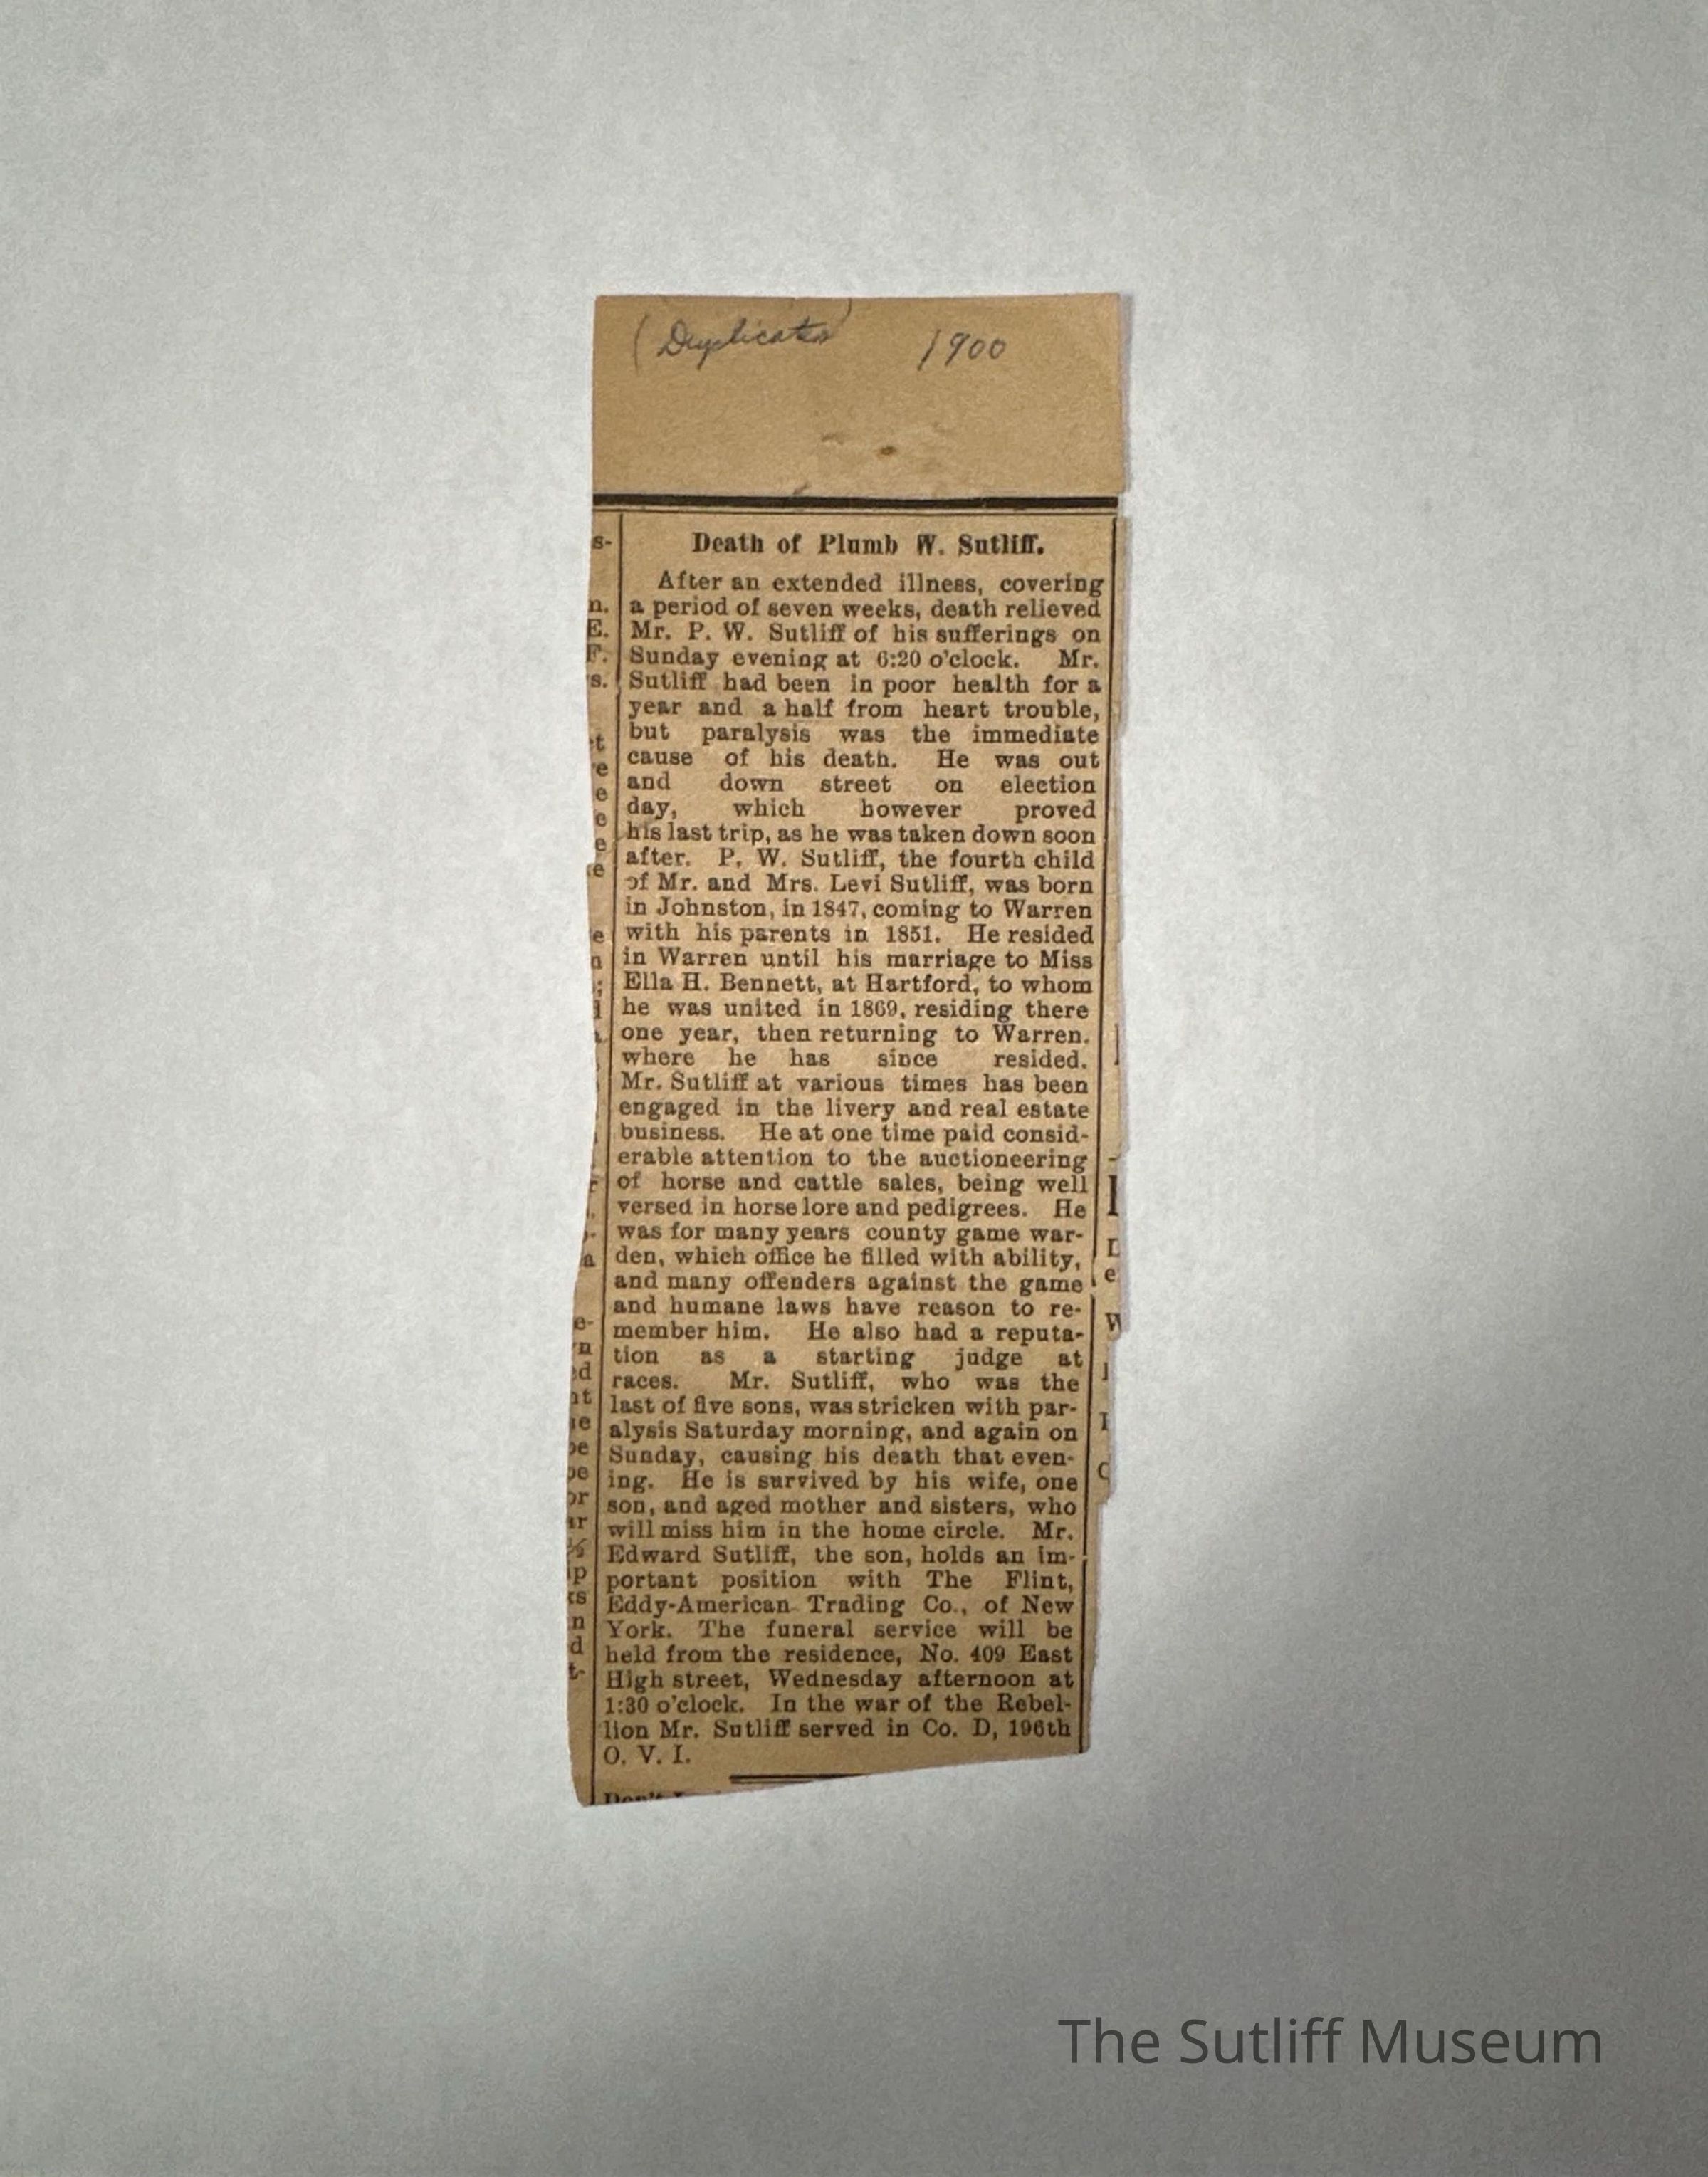 (Duplicate) 1900
Death of Plumb W. Sutliff.
After an extended illness, covering
a period of seven weeks, death relieved
Mr. P. W. Sutliff of his sufferings on
Sunday evening at 6:20 o'clock. Mr.
Sutliff had been in poor health for a
year and a half from heart trouble,
but paralysis was the immediate
cause of his death. He was out
and down street on election
day, which however proved
his last trip, as he was taken down soon
after. P. W. Sutliff, the fourth child
of Mr. and Mrs. Levi Sutliff, was born
in Johnston, in 1847, coming to Warren
with his parents in 1851. He resided
in Warren until his marriage to Miss
Ella H. Bennett, at Hartford, to whom
he was united in 1869, residing there
one year, then returning to Warren.
where he has since resided.
Mr. Sutliff at various times has been
engaged in the livery and real estate
business. He at one time paid consid-
erable attention to the auctioneering
of horse and cattle sales, being well
versed in horse lore and pedigrees. He
was for many years county game war-
den, which office he filled with ability,
and many offenders against the game
and humane laws have reason to re-
member him. He also had a reputa-
tion as a starting judge at
races. Mr. Sutliff, who was the
last of five sons, was stricken with par-
alysis Saturday morning, and again on
Sunday, causing his death that even-
ing. He is survived by his wife, one
son, and aged mother and sisters, who
will miss him in the home circle. Mr.
Edward Sutliff, the son, holds an im-
portant position with The Flint,
Eddy-American Trading Co., of New
York. The funeral service will be
held from the residence, No. 409 East
High street, Wednesday afternoon at
1:30 o'clock. In the war of the Rebel-
lion Mr. Sutliff served in Co. D, 196th
O. V. I.
The Sutliff Museum